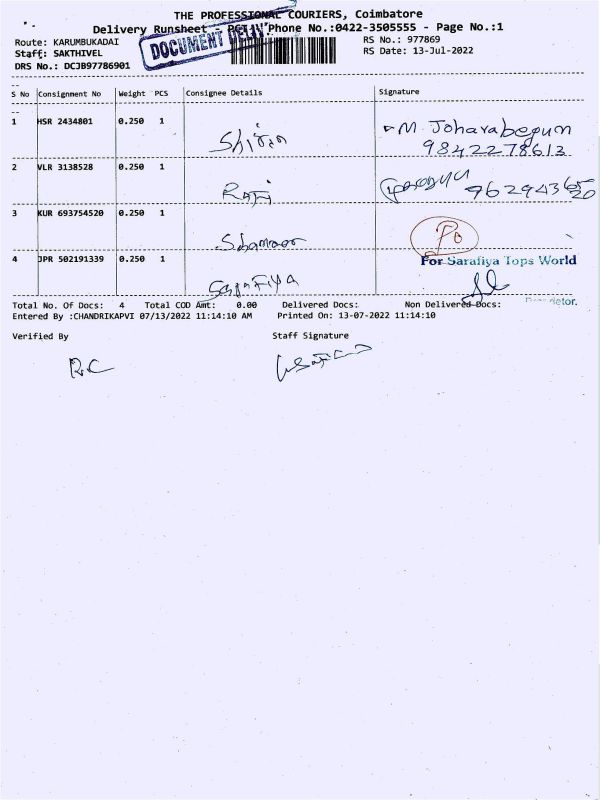 THE PROFESSIONAL COURIERS, Coimbatore
Delivery Runsheet - Phone No.:0422-3505555 - Page No.:1
DOCUMENT
Route: KARUMBUKADAI
RS No.: 977869
Staff: SAKTHIVEL
RS Date: 13-Jul-2022
DRS No.: DCJB97786901
S No Consignment No Weight PCS Consignee Details Signature
1 HSR 2434801 0.250 1 M. Joharabegum
9842278613
2 VLR 3138528 0.250 1 Raji
3 KUR 693754520 0.250 1
4 JPR 502191339 0.250 1 For Sarafiya Tops World
Total No. Of Docs: 4 Total COD Amt: 0.00 Delivered Docs: Non Delivered Docs:
Entered By :CHANDRIKAPVI 07/13/2022 11:14:10 AM Printed On: 13-07-2022 11:14:10
Verified By Staff Signature